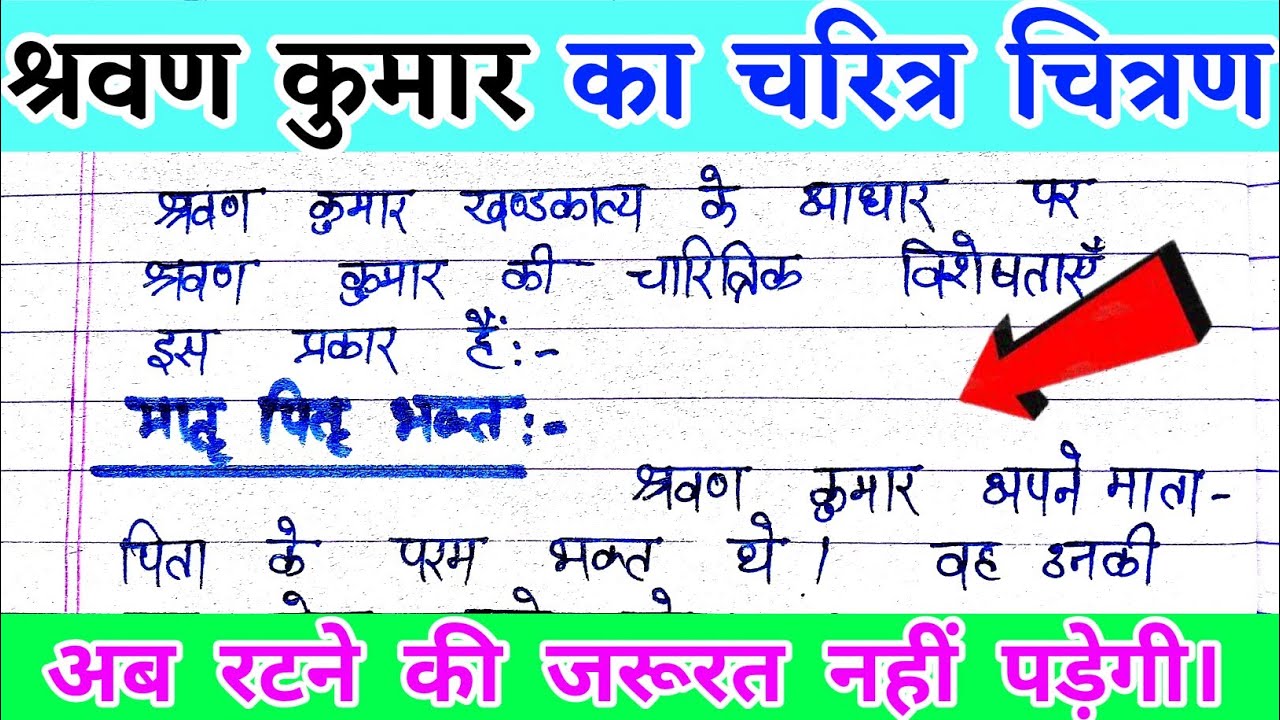 श्रवण कुमार का चरित्र चित्रण
श्रवण कुमार खण्डकाव्य के आधार पर
श्रवण कुमार की चारित्रिक विशेषताएँ
इस प्रकार हैं:-
मातृ पितृ भक्त:-
श्रवण कुमार अपने माता-
पिता के परम भक्त थे। वह उनकी
अब रटने की जरूरत नहीं पड़ेगी।